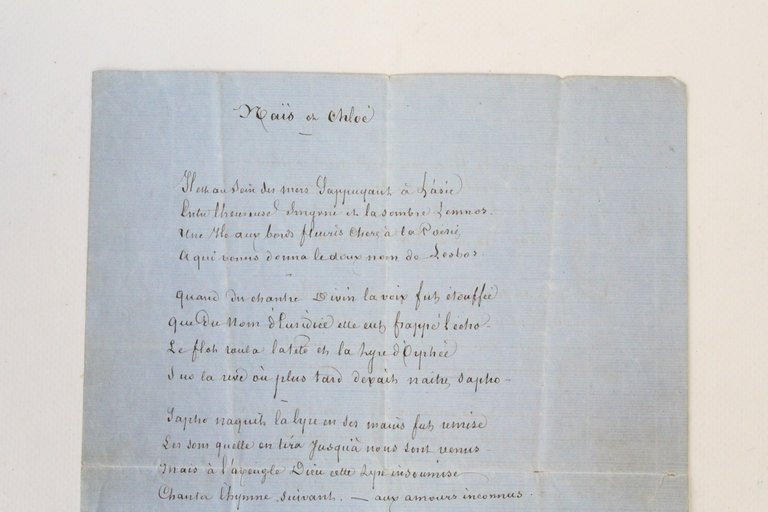 Naïs et Chloé
Il est au sein des mers S'appuyant à L'asie
Entre l'heureuse Smyrne et la sombre Lemnos.
Une Ile aux bords fleuris chere à la Poesie
A qui venus donna le doux nom de Lesbos
quand du chantre Divin la voix fut étouffée
que Du Nom d'Euridice elle eut frappé l'echo-
Le flot roula la tete et la Lyre d'Orphée
Sur la rive où plus tard devait naitre sapho-
Sapho naquit la lyre en ses mains fut remise
Les sons quelle en tira Jusqu'à nous sont venus
Mais à l'aveugle Dieu cette Lyre insoumise
Chanta l'hymne suivant. — aux amours inconnus.